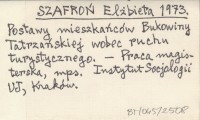 SZAFROŃ Elżbieta 1973.
Postawy mieszkańców Bukowiny
Tatrzańskiej wobec ruchu
turystycznego. – Praca magis-
terska, mps. Instytut Socjologii
UJ, Kraków.